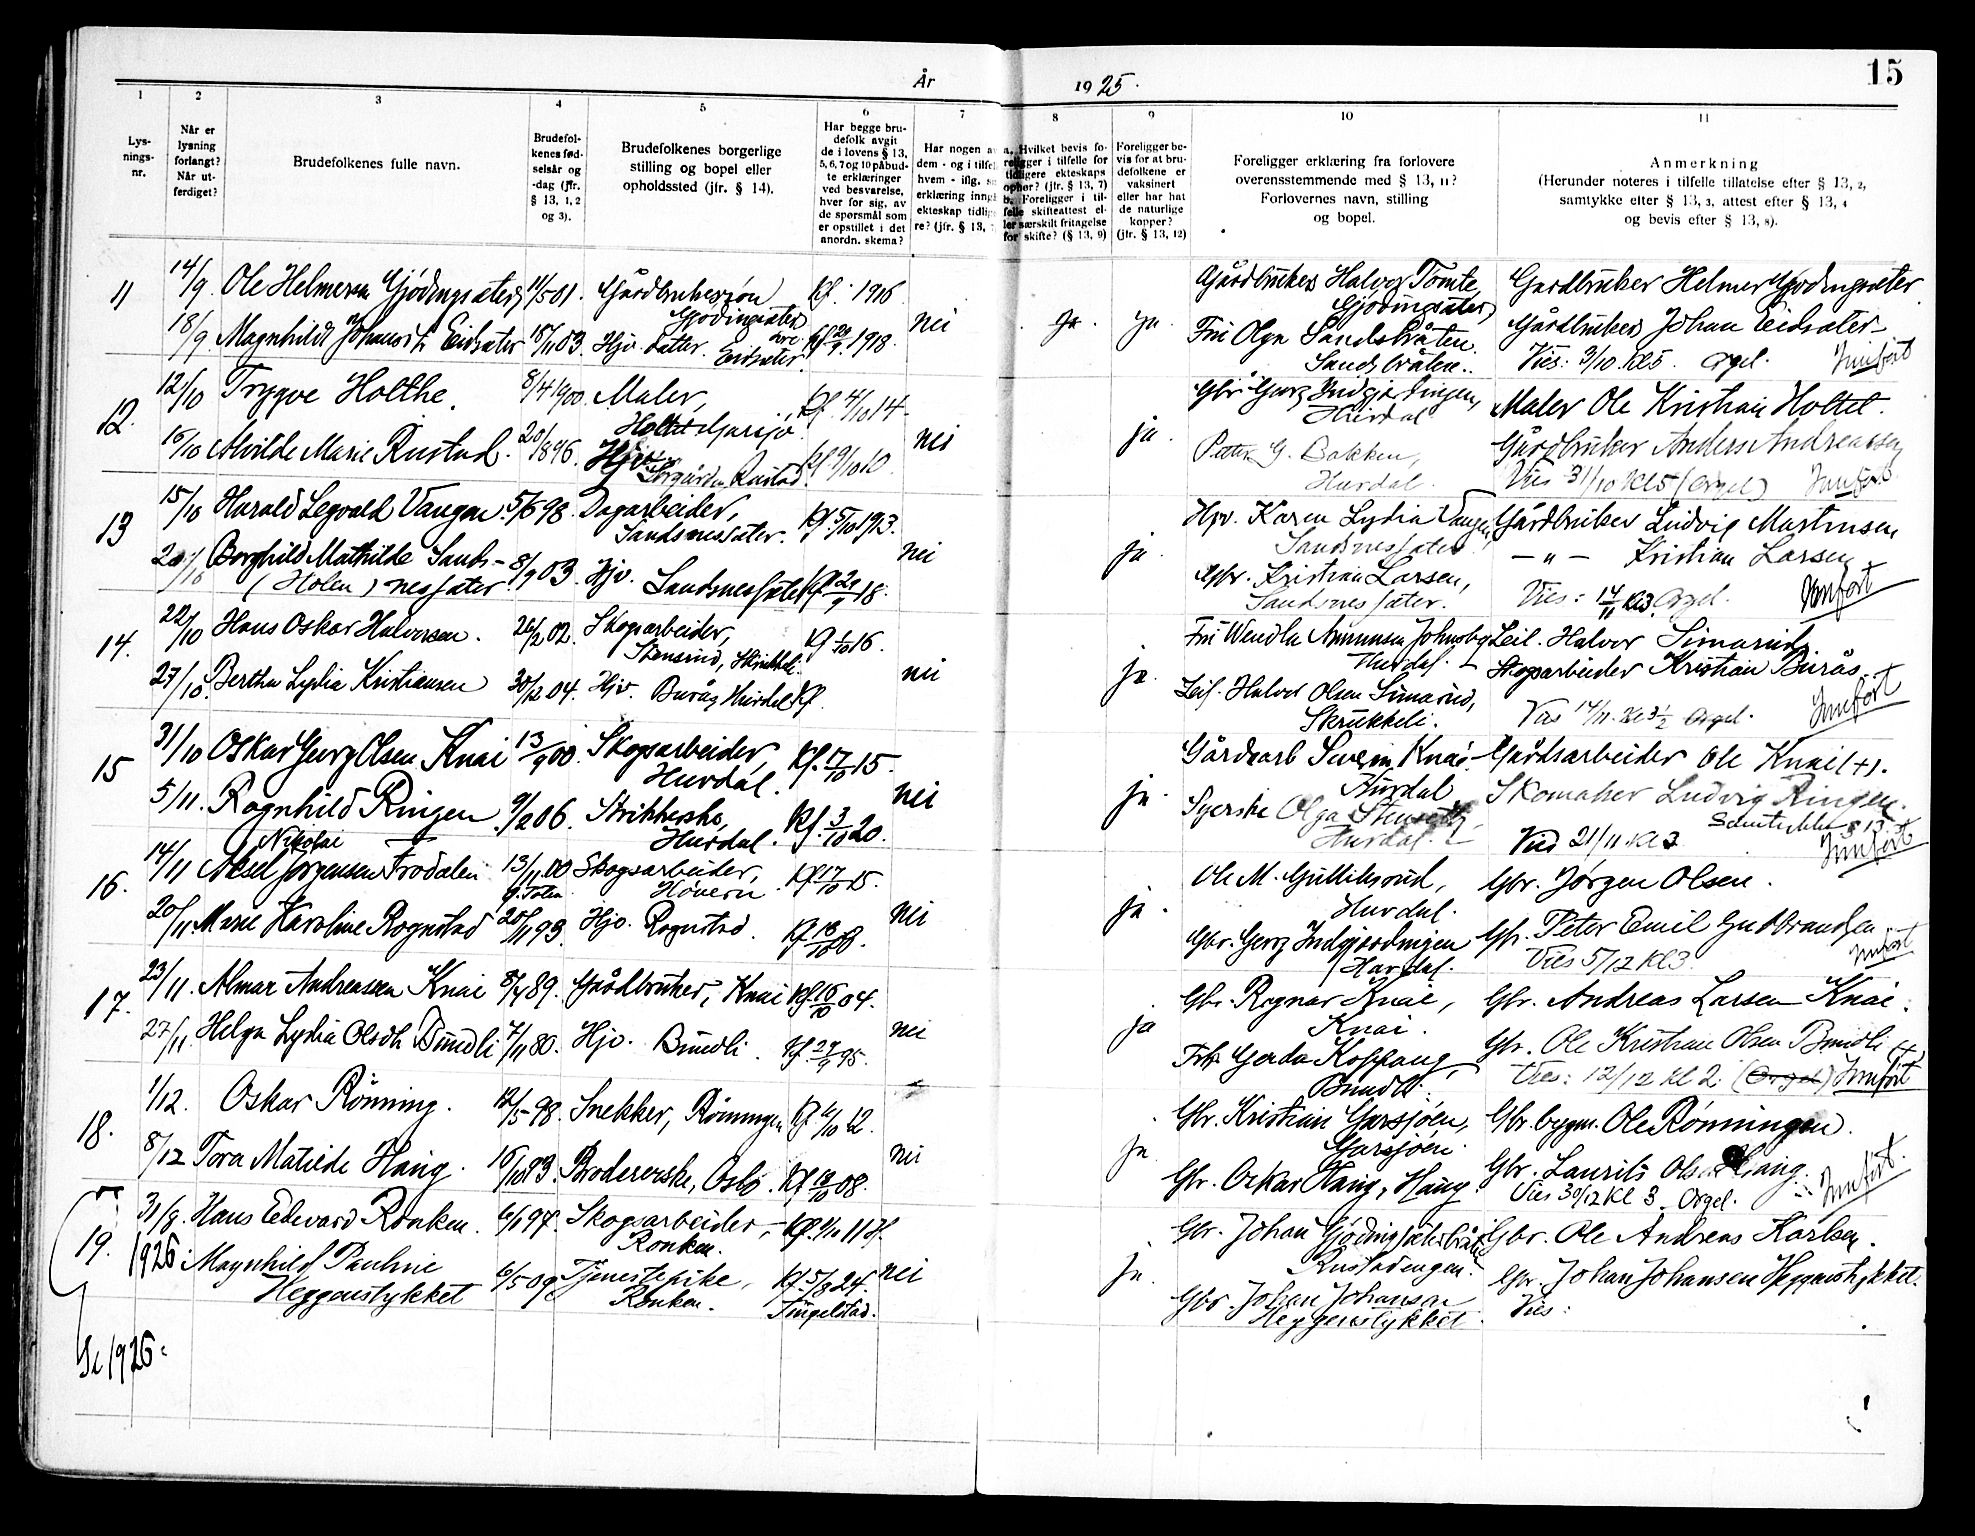 15
År 1925.
1 2 3 4 5 6 7 8 9 10 11
Lys-
nings-
nr.
Når er
lysning
forlangt?
Når ut-
ferdiget?
Brudefolkenes fulle navn.
Brudefol-
kenes fød-
selsår og
-dag (jfr.
§ 13, 1, 2
og 3).
Brudefolkenes borgerlige
stilling og bopel eller
opholdssted (jfr. § 14).
Har begge bru-
defolk avgit
de i lovens § 13,
5, 6, 7 og 10 påbud-
te erklæringer
ved besvarelse,
hver for sig, av
de spørsmål som
er opstillet i det
anordn. skema?
Har nogen a
dem - og i tilfel
hvem - iflg.
erklæring inng
ekteskap tidlig
re? (jfr. § 13,
a. Hvilket bevis fo-
religger i tilfelle for
tidligere ekteskaps
ophør? (jfr. § 13, 7)
b. Foreligger i til-
felle skifteattest el-
ler særskilt fritagelse
for skifte? (§ 13, 9)
Foreligger be-
vis for at bru-
defolkene er
vaksinert
eller har hat
de naturlige
kopper?
(jfr. § 13, 12)
Foreligger erklæring fra forlovere
overensstemmende med § 13, 11?
Forlovernes navn, stilling
og bopel.
Anmerkning
(Herunder noteres i tilfelle tillatelse efter § 13, 2,
samtykke efter § 13, 3, attest efter § 13, 4
og bevis efter § 13, 8).
11 14/9 Ole Helmersen Gjødingsæter 11/5 01. Gårdbrukersøn Kf. 1916 Gårdbruker Halvor Tomte, Gardbruker Helmer Gjødingsæter
Gjødingsæter Gjødingsæter
18/9 Magnhild Johansdtr. Eidsæter 18/11 03. Hjv. datter. Eidsæter. 1918. nei ja. ja. Frü Olga Sandsbråten Gårdbruker Johan Eidsæter
Sandsbråten. Vies: 3/10 kl 5. Orgel. Innført
12. 12/10 Trygve Holthe. 8/4 1900. Maler, Kf. 4/10 14. Gbr. Georg Indgjerdingen, Maler Ole Kristian Holtet.
Garsjø. Hurdal
15/10 Alvilde Marie Rustad. 20/ 1896. Hjv. Rustad Kf 9/10 10. nei ja. G. Bakken, Gårdbruker Anders Andreassen
Hurdal. Vies 31/10 kl 5 (Orgel) Innført
13 15/10 Harald Segvald Vangen. 5/6 98. Dagarbeider, Kf. 5/10 1913. Hjv. Karen Lydia Vangen, Gårdbruker Ludvig Martinsen
Sandsnessæter. Sandsnessæter
Borghild Mathilde Sands- 8/9 03. Hjv. Sandsnessæter Kf 29/9 18. nei ja. Gbr. Kristian Larsen, — " — Kristian Larsen
(Holen) nessæter Sandsnessæter. Vies: 14/11 kl 3. Orgel. Innført
14. 22/10 Hans Oskar Halvorsen. 26/2 02. Skogsarbeider, Kf 1/10 16. Frü Wendla Amundsen Johnsby Leil. Halvor Simarud,
Stensrud, Skrukkeli. Hurdal.
27/10. Bertha Lydia Kristiansen 30/12 04. Hjv. Burås, Hurdal Kf. nei ja. Leil. Halvor Olsen Simarud, Skogsarbeider Kristian Burås.
Skrukkeli. Vies 14/11. Kl 3 1/2 Orgel. Innført
15 31/10 Oskar Georg Olsen Knai 13/9 00. Skogsarbeider, Kf. 17/10 15. Gårdsarb Severin Knai Gårdsarbeider Ole Knai (+).
Hurdal. Hurdal
5/11. Ragnhild Ringen 9/2 06. Strikkerske, Kf. 3/10 20. nei ja. Syerske Olga Skomaker Ludvig Ringen.
Hurdal. Hurdal. Samtykke § 13.
Vied 21/11. kl 3 Innført
16. 14/11 Aksel Nikolai Jørgensen Frodalen 13/11 00 Skogsarbeider, Kf 17/10 15. Ole M. Gulliksrud, Gbr. Jørgen Olsen.
Høverü Hurdal.
20/11. Marie Karoline Rognstad 20/11 93. Hjv. Rognstad. Kf 18/10 08. nei ja. Gbr. Georg Indgjerdingen Gbr. Peter Emil Gudbrandsen
Hurdal. Vies 5/12 kl 3 Innført
17. 23/11. Almar Andreassen Knai 8/4 89. Gårdbruker, Knai Kf. 16/10 04. Gbr. Ragnar Knai, Gbr. Andreas Larsen Knai.
Knai.
27/11. Helga Lydia Olsdtr. Bundli 7/11 80. Hjv. Bundli. Kf. 29/9 95. nei ja Frk. Gerda Koppang, Gbr. Ole Kristian Olsen Bundli (+)
Bundli. Vies: 12/12 kl 2. (Orgel) Innført
18. 1/12. Oskar Rønning. 12/5 98. Snekker, Rønningen Kf. 4/10 12. Gbr. Kristian Garsjøen, Gbr. Ole Rønningen.
Garsjøen.
8/12 Tora Matilde Haug. Brodererske, Oslo. Kf. 18/10 08. nei ja. Gbr. Oskar Haug, Haug Gbr. Laurits Olsen Haug.
Vies 30/12 kl 3. Orgel. Innført
19. 31/8 Hans Edevard Ronken. 6/1 97. Skogsarbeider, Kf. 1/10 11 Gbr. Johan Gjødingsæterbråten Gbr. Ole Andreas Karlsen.
Ronken. Rustadengen.
1926 Magnhild Pauline 6/5 09. Tjenestepike, Kf. 5/8 24. nei ja. Gbr. Johan Johansen Gbr. Johan Johansen Heggenstykket.
Heggenstykket Ronken. Fingelstad. Heggenstykket. Vies:
Se 1926.